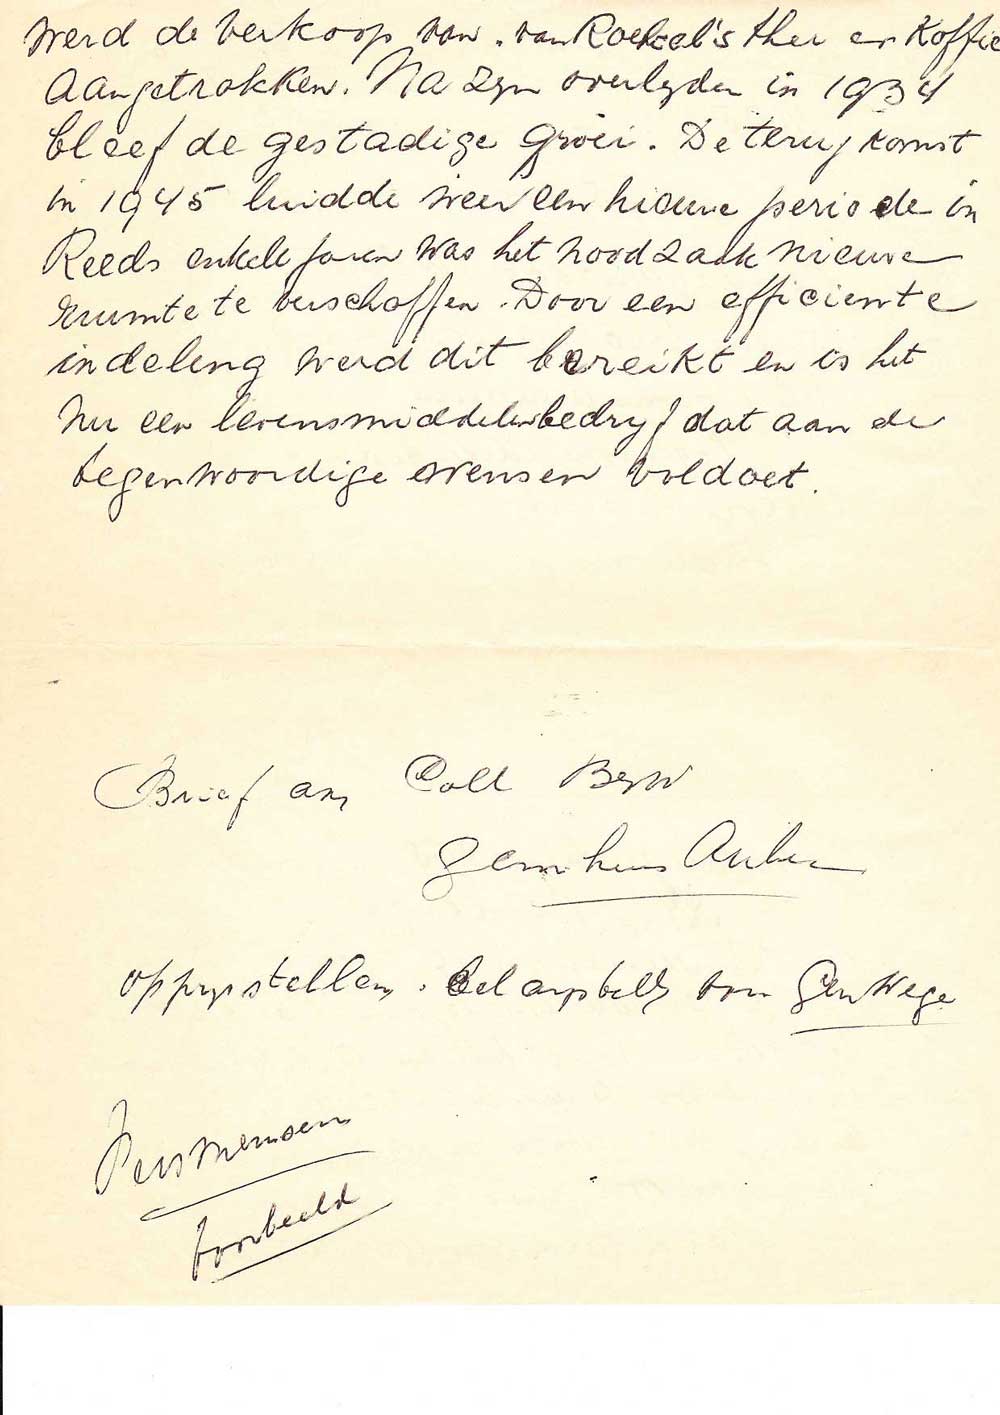 werd de verkoop van . van Roekel's thee en Koffie
aangetrokken. Na zyn overlyden in 1934
bleef de gestadige groei. De terugkomst
in 1945 luidde weer een nieuwe periode in
Reeds enkele jaren was het noodzaak nieuwe
ruimte te verschaffen. Door een efficiente
indeling werd dit bereikt en is het
nu een levensmiddelenbedryf dat aan de
tegenwoordige wensen voldoet.
Brief aan Coll B en W
Gem huis
van
Persmensen
voorbeeld